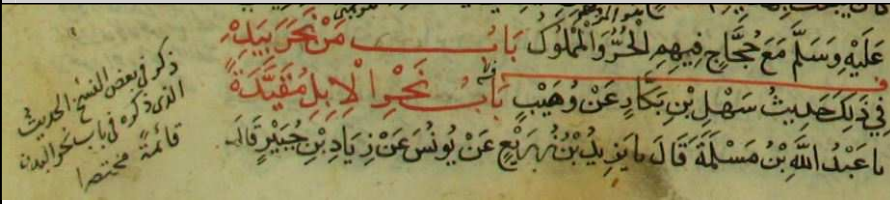 عَلَيْهِ وَسَلَّمَ مَعَ حُجَّاجٍ فِيهِمِ الْحُرُّ وَالْمَمْلُوكُ بَابُ مَنْ نَحَرَ بِيَدِهِ
فِي ذَلِكَ حَدِيثُ سَهْلِ بْنِ بَكَّارٍ عَنْ وُهَيْبٍ بَابُ نَحْرِ الْإِبِلِ مُقَيَّدَةً
نا عَبْدُ اللَّهِ بْنُ مَسْلَمَةَ قَالَ نا يَزِيدُ بْنُ زُرَيْعٍ عَنْ يُونُسَ عَنْ زِيَادِ بْنِ جُبَيْرٍ قَالَ
ذكر في بعض النسخ الحديث
الذي ذكره في باب نحر البدن
قائمة مختصرا